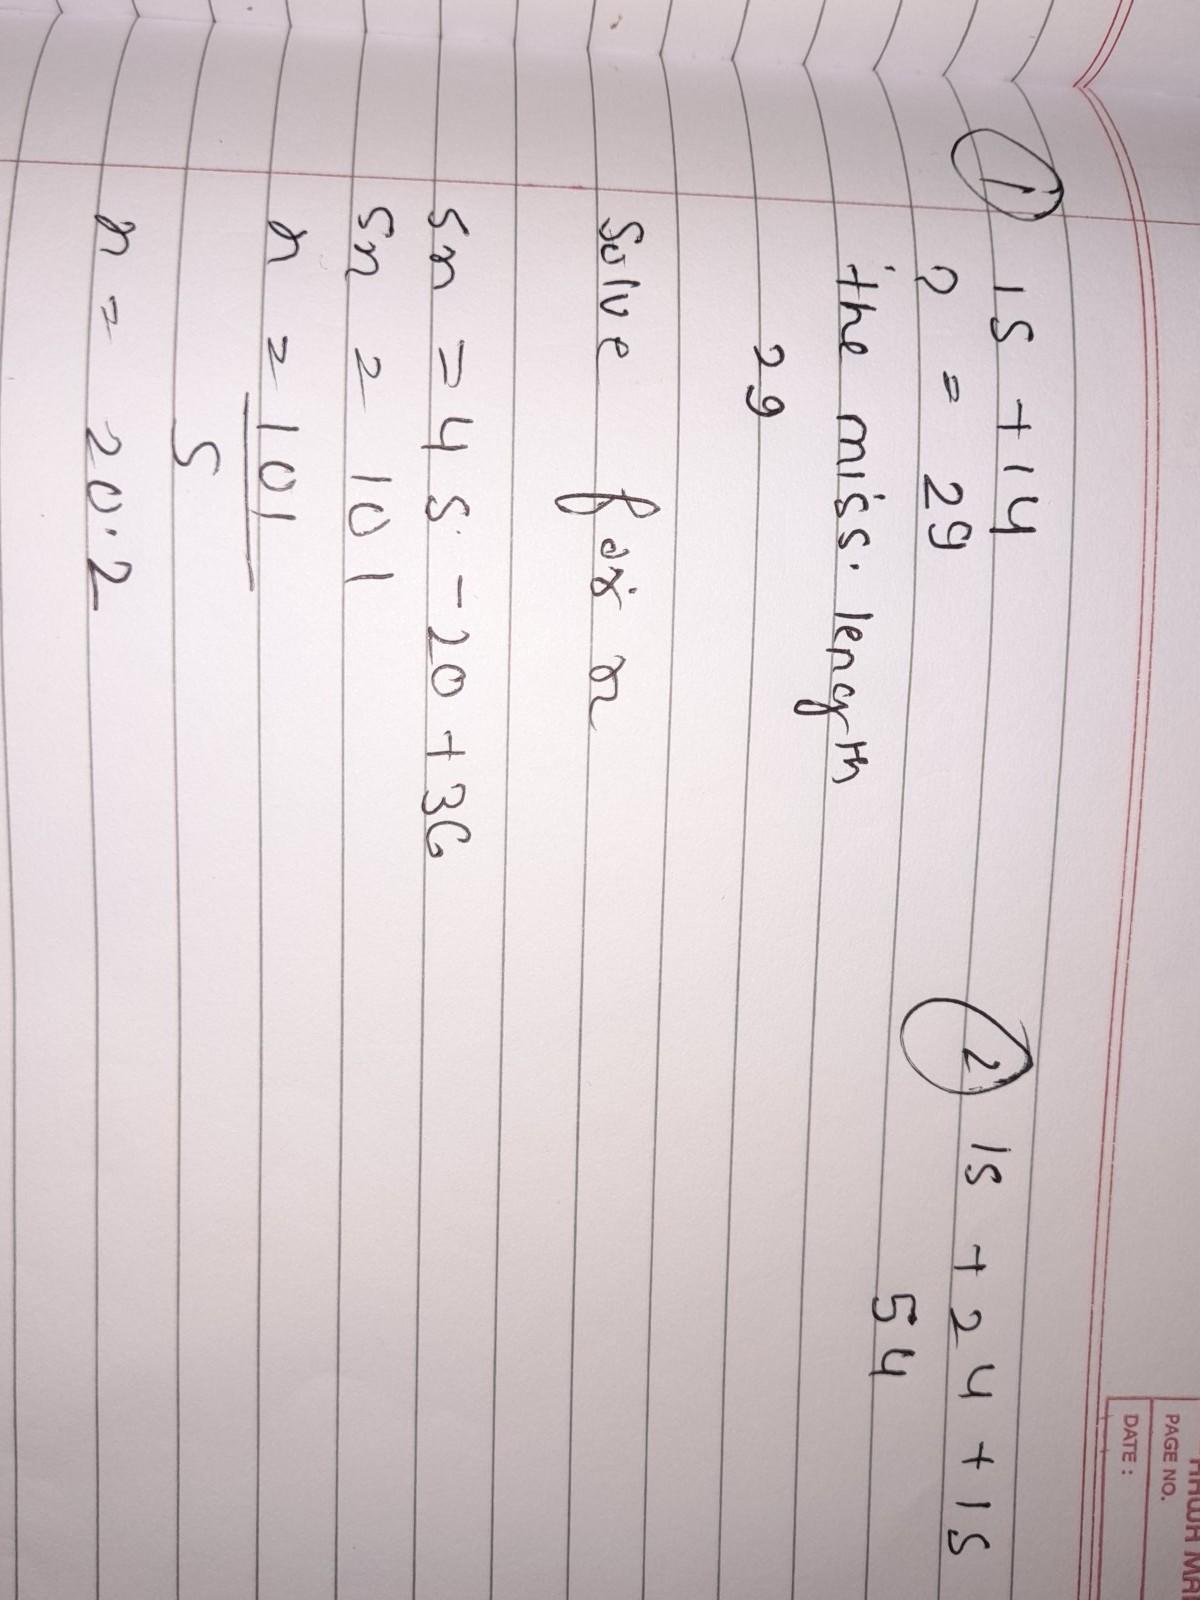 PAGE NO.
DATE :
① 15 + 14
? = 29
the miss. length
29
② 15 + 24 + 15
54
Solve for x
5x = 45 - 20 + 36
5x = 101
x = 101
5
x = 20.2